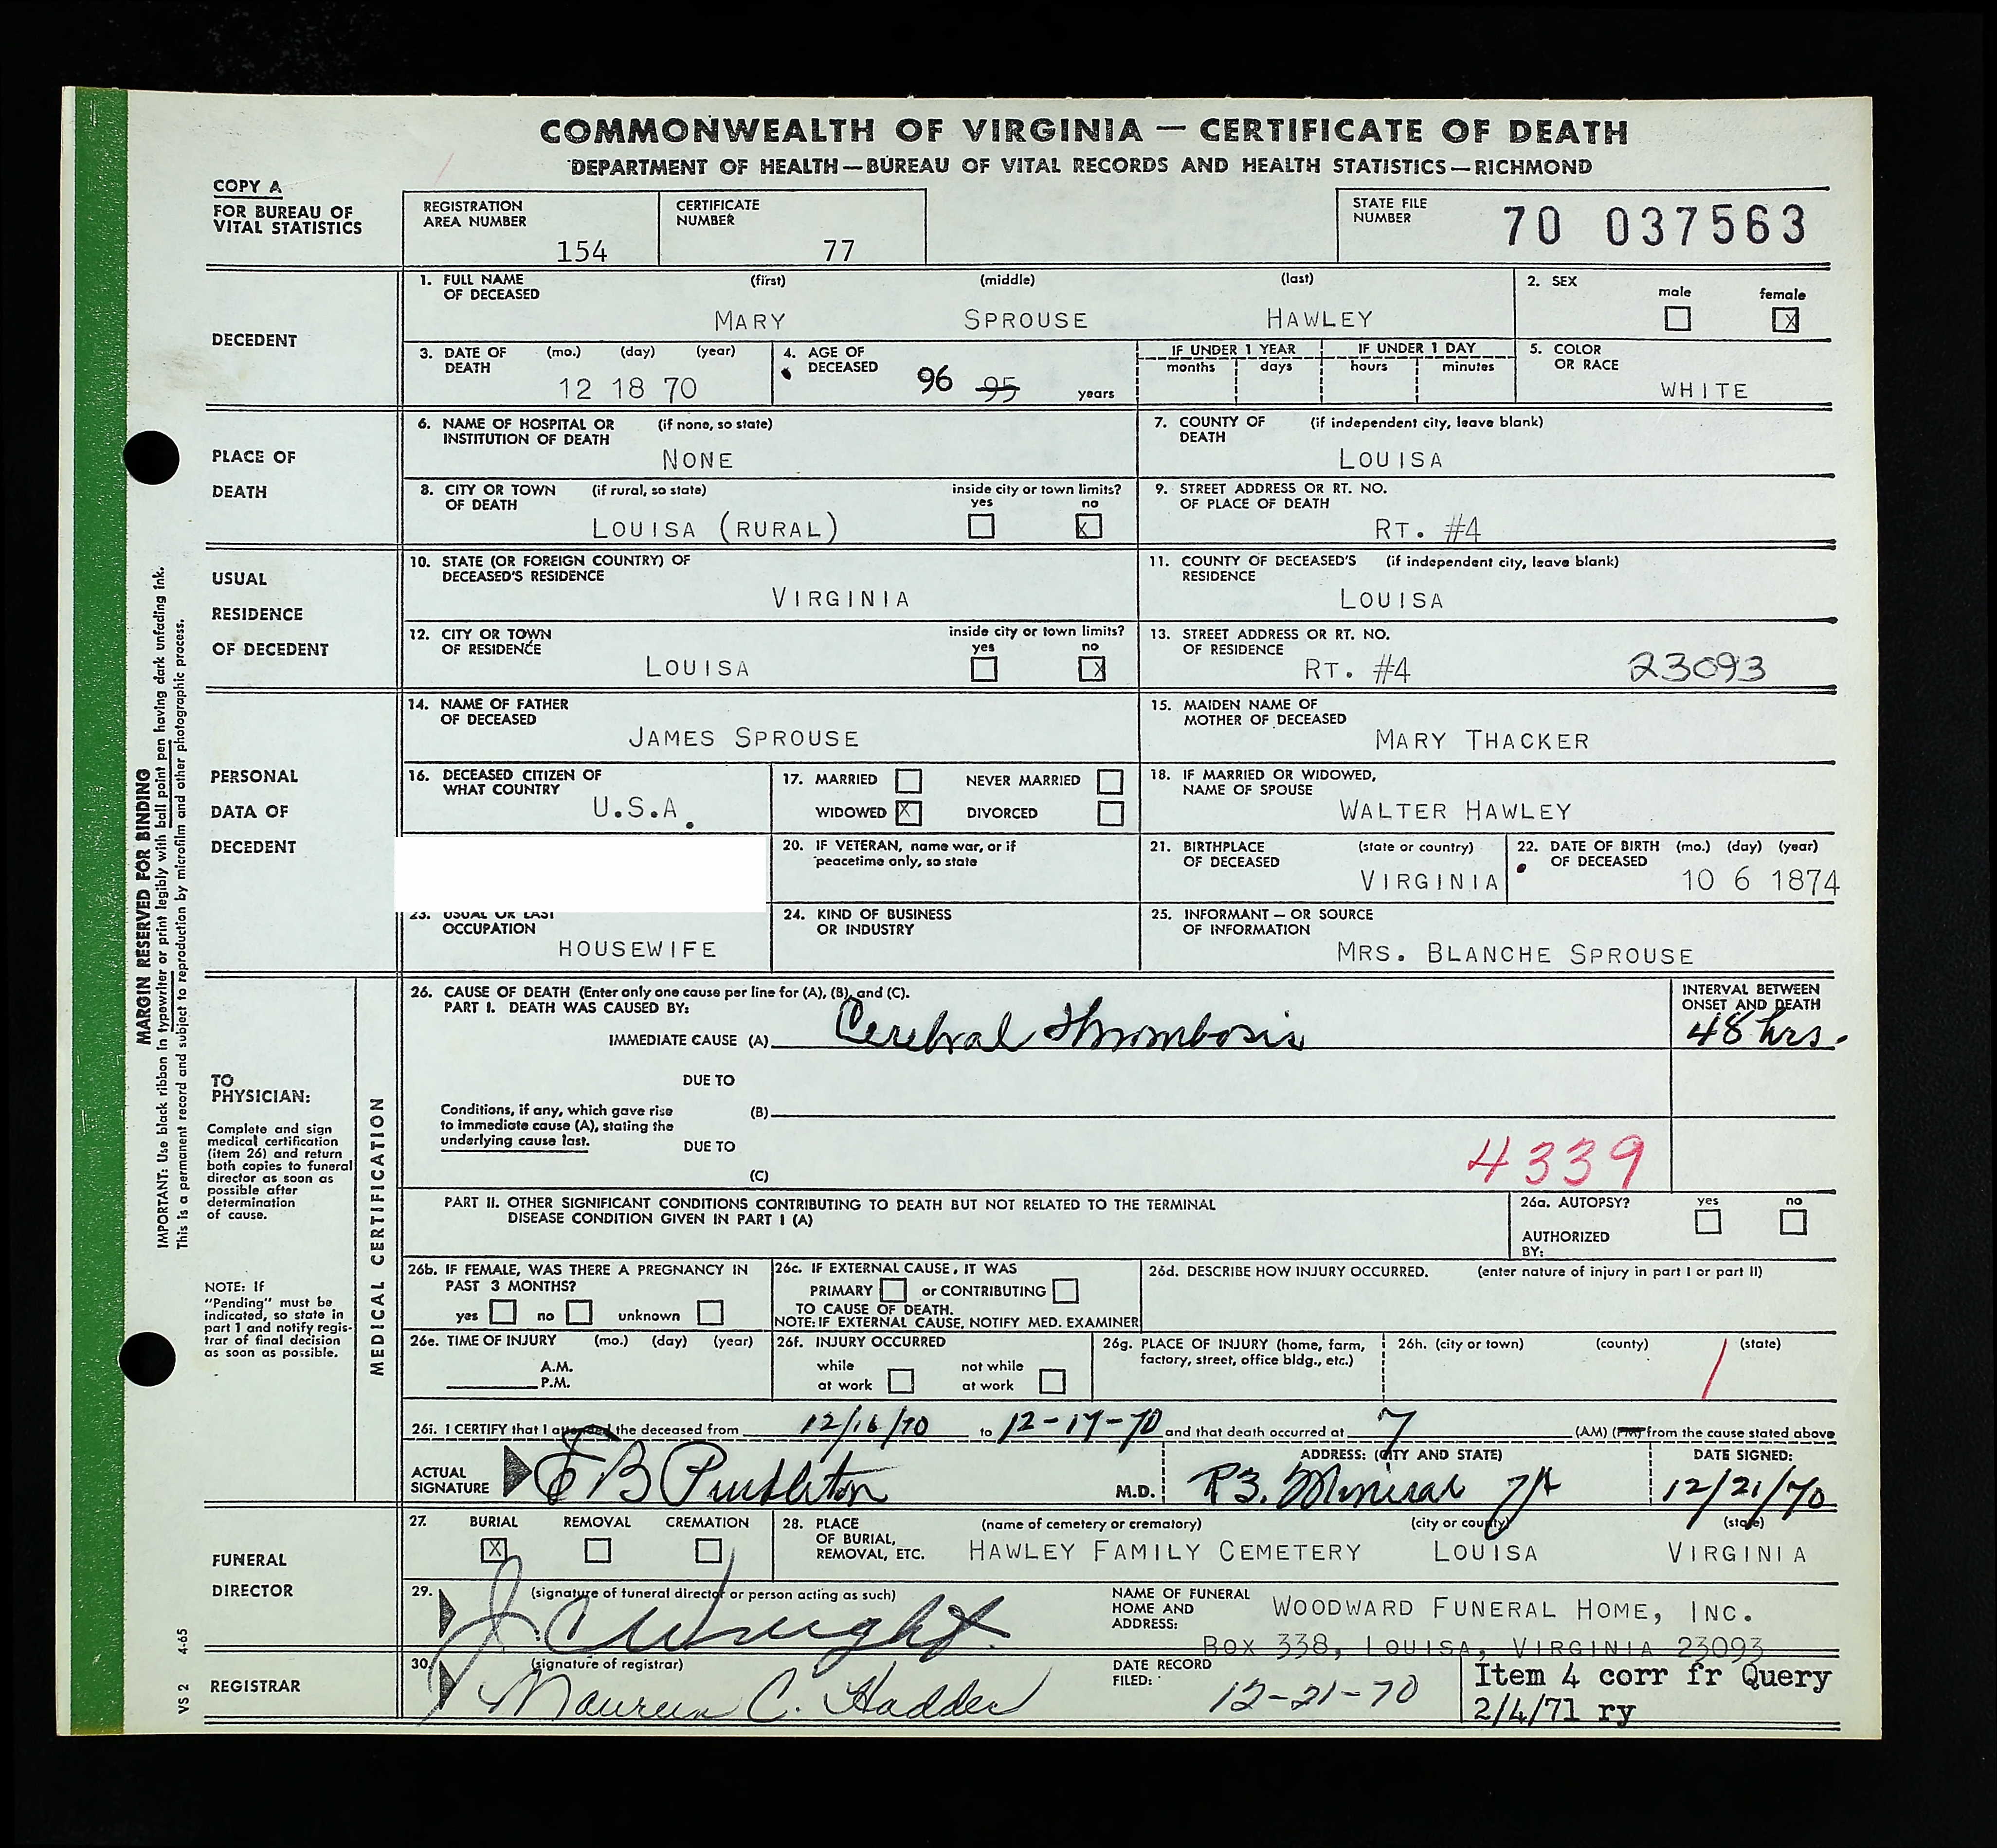 COMMONWEALTH OF VIRGINIA — CERTIFICATE OF DEATH
DEPARTMENT OF HEALTH—BUREAU OF VITAL RECORDS AND HEALTH STATISTICS—RICHMOND
COPY A
FOR BUREAU OF
VITAL STATISTICS
REGISTRATION
AREA NUMBER
154
CERTIFICATE
NUMBER
77
STATE FILE
NUMBER
70 037563
DECEDENT
1. FULL NAME (first) (middle) (last)
OF DECEASED
MARY SPROUSE HAWLEY
2. SEX
male female
X
3. DATE OF (mo.) (day) (year)
DEATH
12 18 70
4. AGE OF
DECEASED
96 95 years
IF UNDER 1 YEAR IF UNDER 1 DAY
months days hours minutes
5. COLOR
OR RACE
WHITE
PLACE OF
DEATH
6. NAME OF HOSPITAL OR (if none, so state)
INSTITUTION OF DEATH
NONE
7. COUNTY OF (if independent city, leave blank)
DEATH
LOUISA
8. CITY OR TOWN (if rural, so state)
OF DEATH
LOUISA (RURAL)
inside city or town limits?
yes no
X
9. STREET ADDRESS OR RT. NO.
OF PLACE OF DEATH
RT. #4
USUAL
RESIDENCE
OF DECEDENT
10. STATE (OR FOREIGN COUNTRY) OF
DECEASED'S RESIDENCE
VIRGINIA
11. COUNTY OF DECEASED'S (if independent city, leave blank)
RESIDENCE
LOUISA
12. CITY OR TOWN
OF RESIDENCE
LOUISA
inside city or town limits?
yes no
X
13. STREET ADDRESS OR RT. NO.
OF RESIDENCE
RT. #4 23093
PERSONAL
DATA OF
DECEDENT
14. NAME OF FATHER
OF DECEASED
JAMES SPROUSE
15. MAIDEN NAME OF
MOTHER OF DECEASED
MARY THACKER
16. DECEASED CITIZEN OF
WHAT COUNTRY
U.S.A.
17. MARRIED NEVER MARRIED
WIDOWED X DIVORCED
18. IF MARRIED OR WIDOWED,
NAME OF SPOUSE
WALTER HAWLEY
20. IF VETERAN, name war, or if
peacetime only, so state
21. BIRTHPLACE (state or country)
OF DECEASED
VIRGINIA
22. DATE OF BIRTH (mo.) (day) (year)
OF DECEASED
10 6 1874
23. USUAL OR LAST
OCCUPATION
HOUSEWIFE
24. KIND OF BUSINESS
OR INDUSTRY
25. INFORMANT — OR SOURCE
OF INFORMATION
MRS. BLANCHE SPROUSE
MARGIN RESERVED FOR BINDING
IMPORTANT: Use black ribbon in typewriter or print legibly with ball point pen having dark unfading ink.
This is a permanent record and subject to reproduction by microfilm and other photographic process.
TO
PHYSICIAN:
Complete and sign
medical certification
(item 26) and return
both copies to funeral
director as soon as
possible after
determination
of cause.
NOTE: If
"Pending" must be
indicated, so state in
part 1 and notify regis-
trar of final decision
as soon as possible.
MEDICAL CERTIFICATION
26. CAUSE OF DEATH (Enter only one cause per line for (A), (B), and (C).
PART I. DEATH WAS CAUSED BY:
IMMEDIATE CAUSE (A) Cerebral Thrombosis
INTERVAL BETWEEN
ONSET AND DEATH
48 hrs.
DUE TO
Conditions, if any, which gave rise (B)
to immediate cause (A), stating the
underlying cause last.
DUE TO
4339
(C)
PART II. OTHER SIGNIFICANT CONDITIONS CONTRIBUTING TO DEATH BUT NOT RELATED TO THE TERMINAL
DISEASE CONDITION GIVEN IN PART I (A)
26a. AUTOPSY? yes no
AUTHORIZED
BY:
26b. IF FEMALE, WAS THERE A PREGNANCY IN
PAST 3 MONTHS?
yes no unknown
26c. IF EXTERNAL CAUSE, IT WAS
PRIMARY or CONTRIBUTING
TO CAUSE OF DEATH.
NOTE: IF EXTERNAL CAUSE, NOTIFY MED. EXAMINER
26d. DESCRIBE HOW INJURY OCCURRED. (enter nature of injury in part I or part II)
26e. TIME OF INJURY (mo.) (day) (year)
A.M.
P.M.
26f. INJURY OCCURRED
while not while
at work at work
26g. PLACE OF INJURY (home, farm,
factory, street, office bldg., etc.)
26h. (city or town) (county) (state)
26i. I CERTIFY that I attended the deceased from 12/16/70 to 12-17-70 and that death occurred at 7 (AM) (PM) from the cause stated above
ACTUAL
SIGNATURE
E B Pendleton M.D.
ADDRESS: (CITY AND STATE)
R3. Mineral VA
DATE SIGNED:
12/21/70
FUNERAL
DIRECTOR
27. BURIAL REMOVAL CREMATION
X
28. PLACE (name of cemetery or crematory) (city or county) (state)
OF BURIAL,
REMOVAL, ETC.
HAWLEY FAMILY CEMETERY LOUISA VIRGINIA
29. (signature of funeral director or person acting as such)
J. C. Wright
NAME OF FUNERAL
HOME AND
ADDRESS:
WOODWARD FUNERAL HOME, INC.
BOX 338, LOUISA, VIRGINIA 23093
REGISTRAR
30. (signature of registrar)
Maureen C. Hadder
DATE RECORD
FILED:
12-21-70
Item 4 corr fr Query
2/4/71 ry
VS 2 4-65